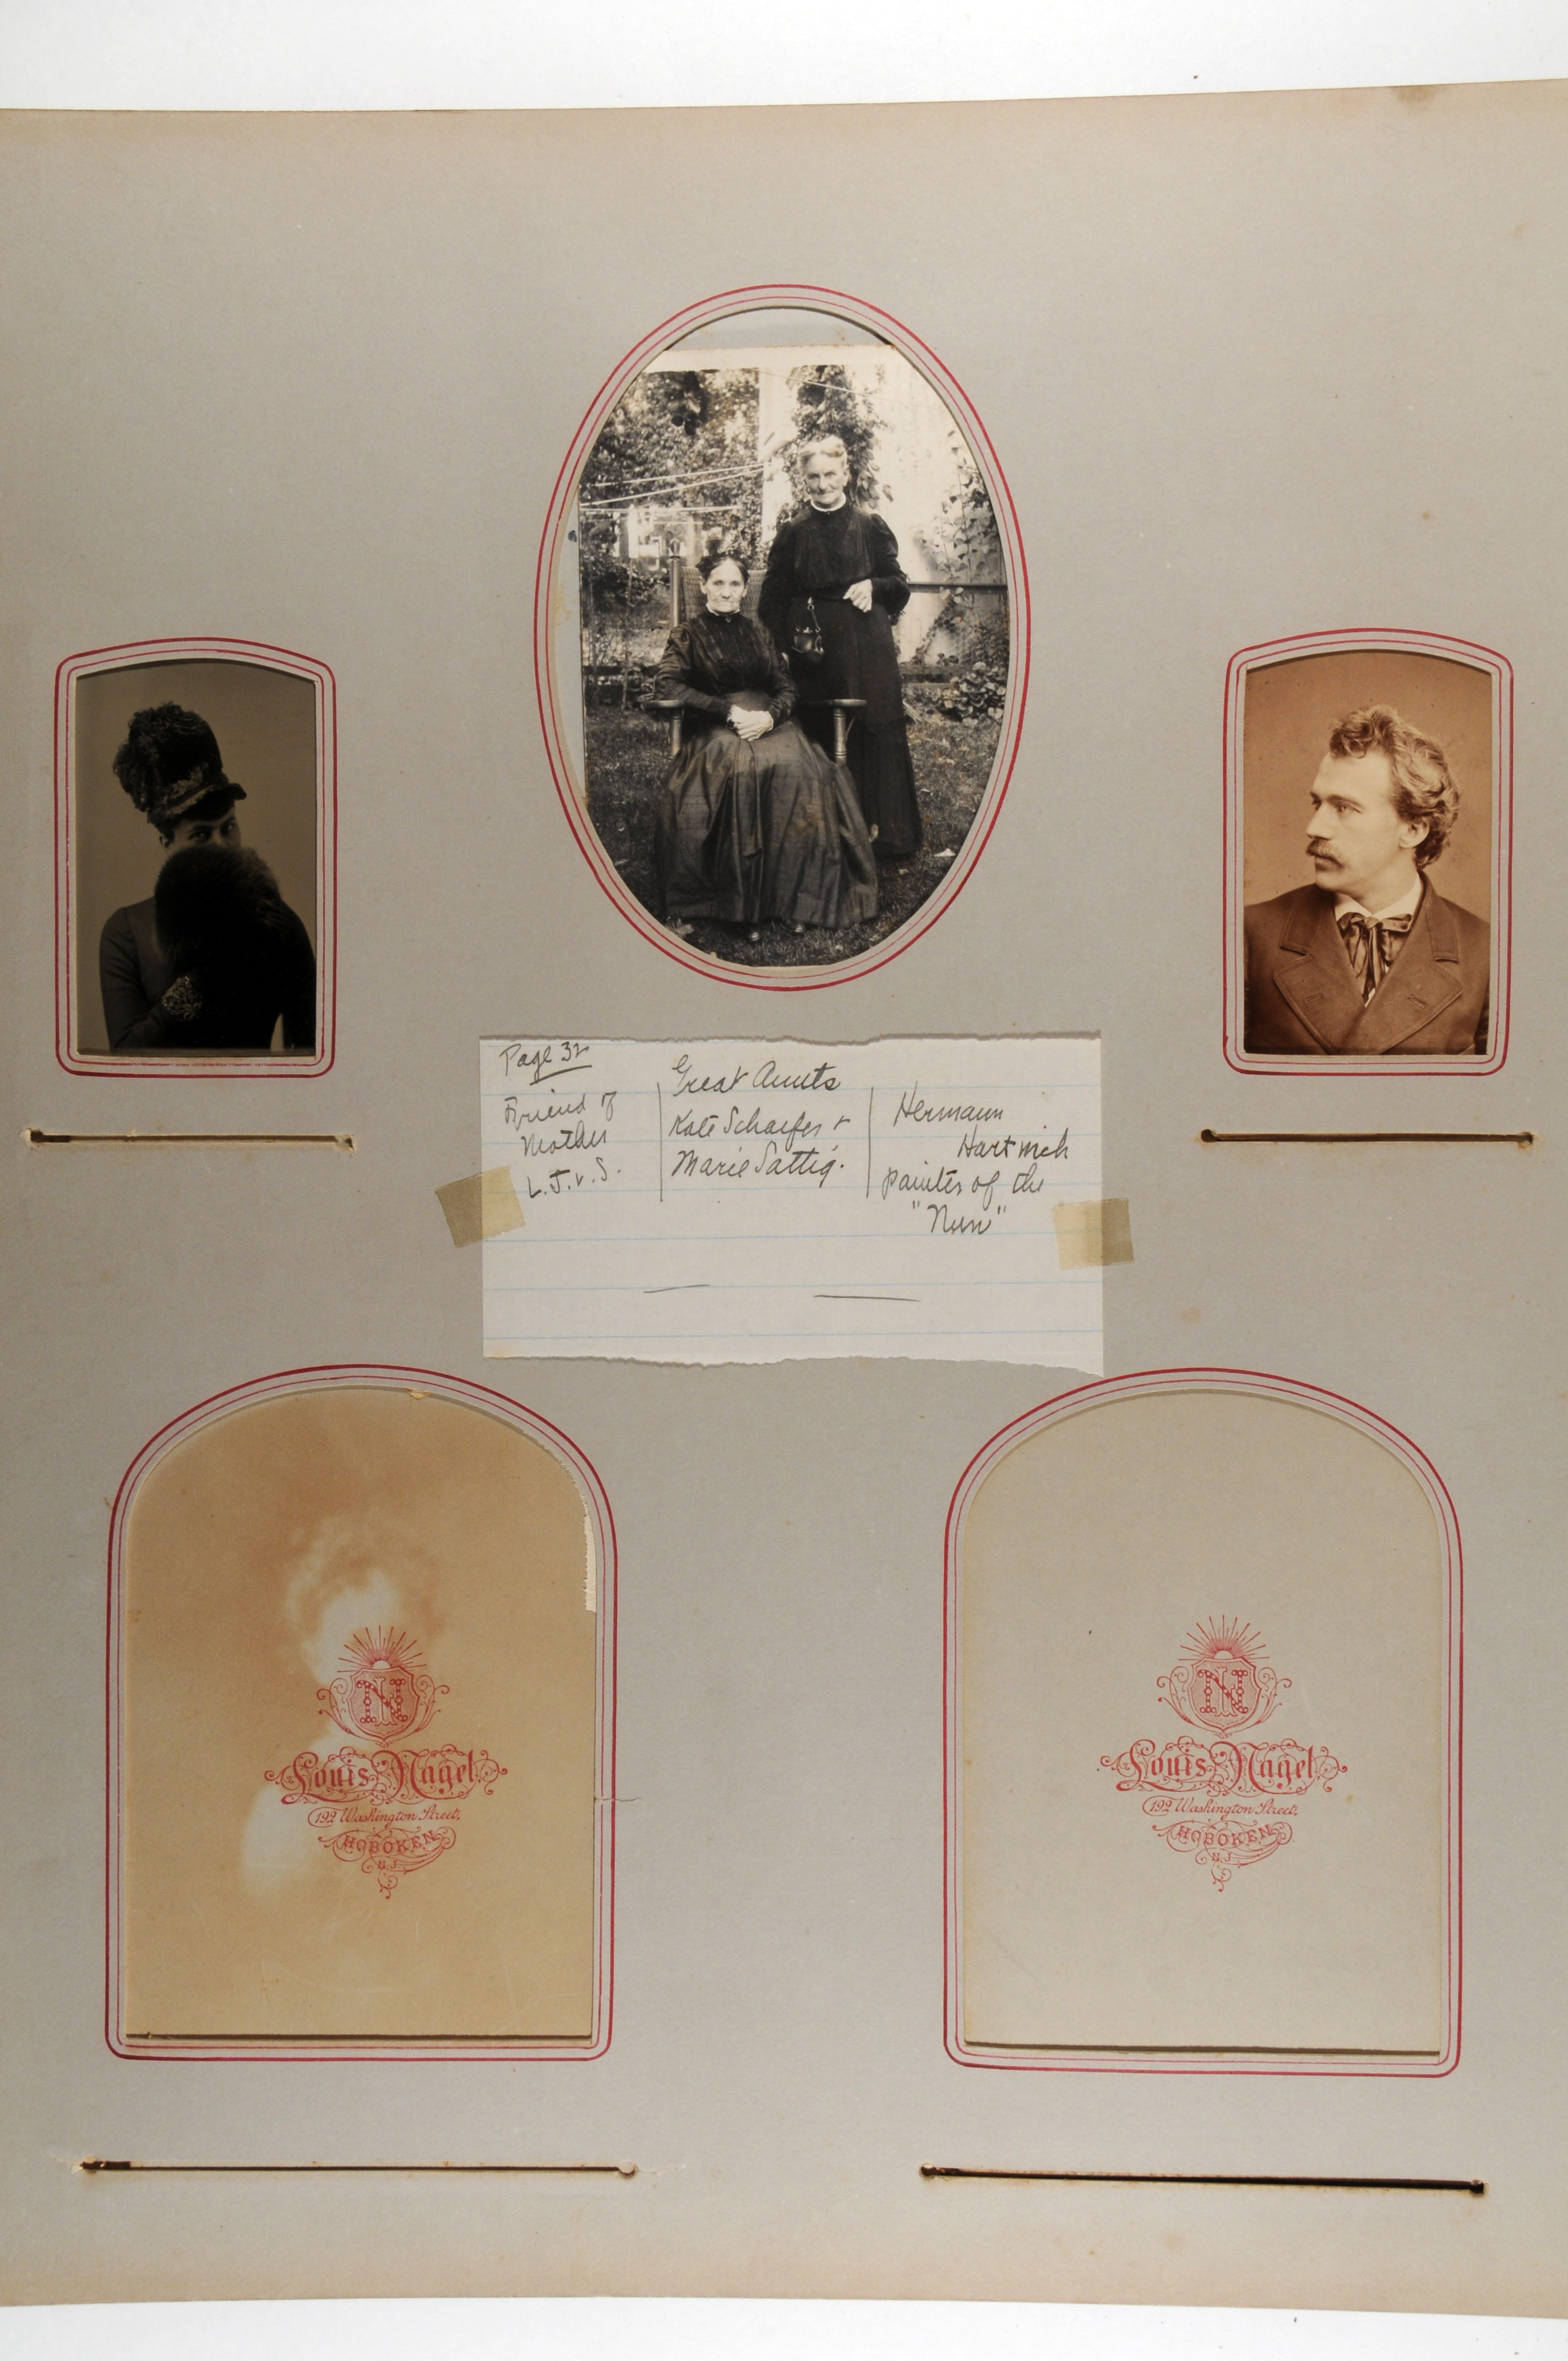 Page 32
Friend of
Mother
L.J.v.S.
Great Aunts
Kate Schaefer +
Marie Sattig.
Hermann
Hartwich
painter of the
"Nun"
N
Louis Nagel,
192 Washington Street,
HOBOKEN
N.J.
N
Louis Nagel,
192 Washington Street,
HOBOKEN
N.J.